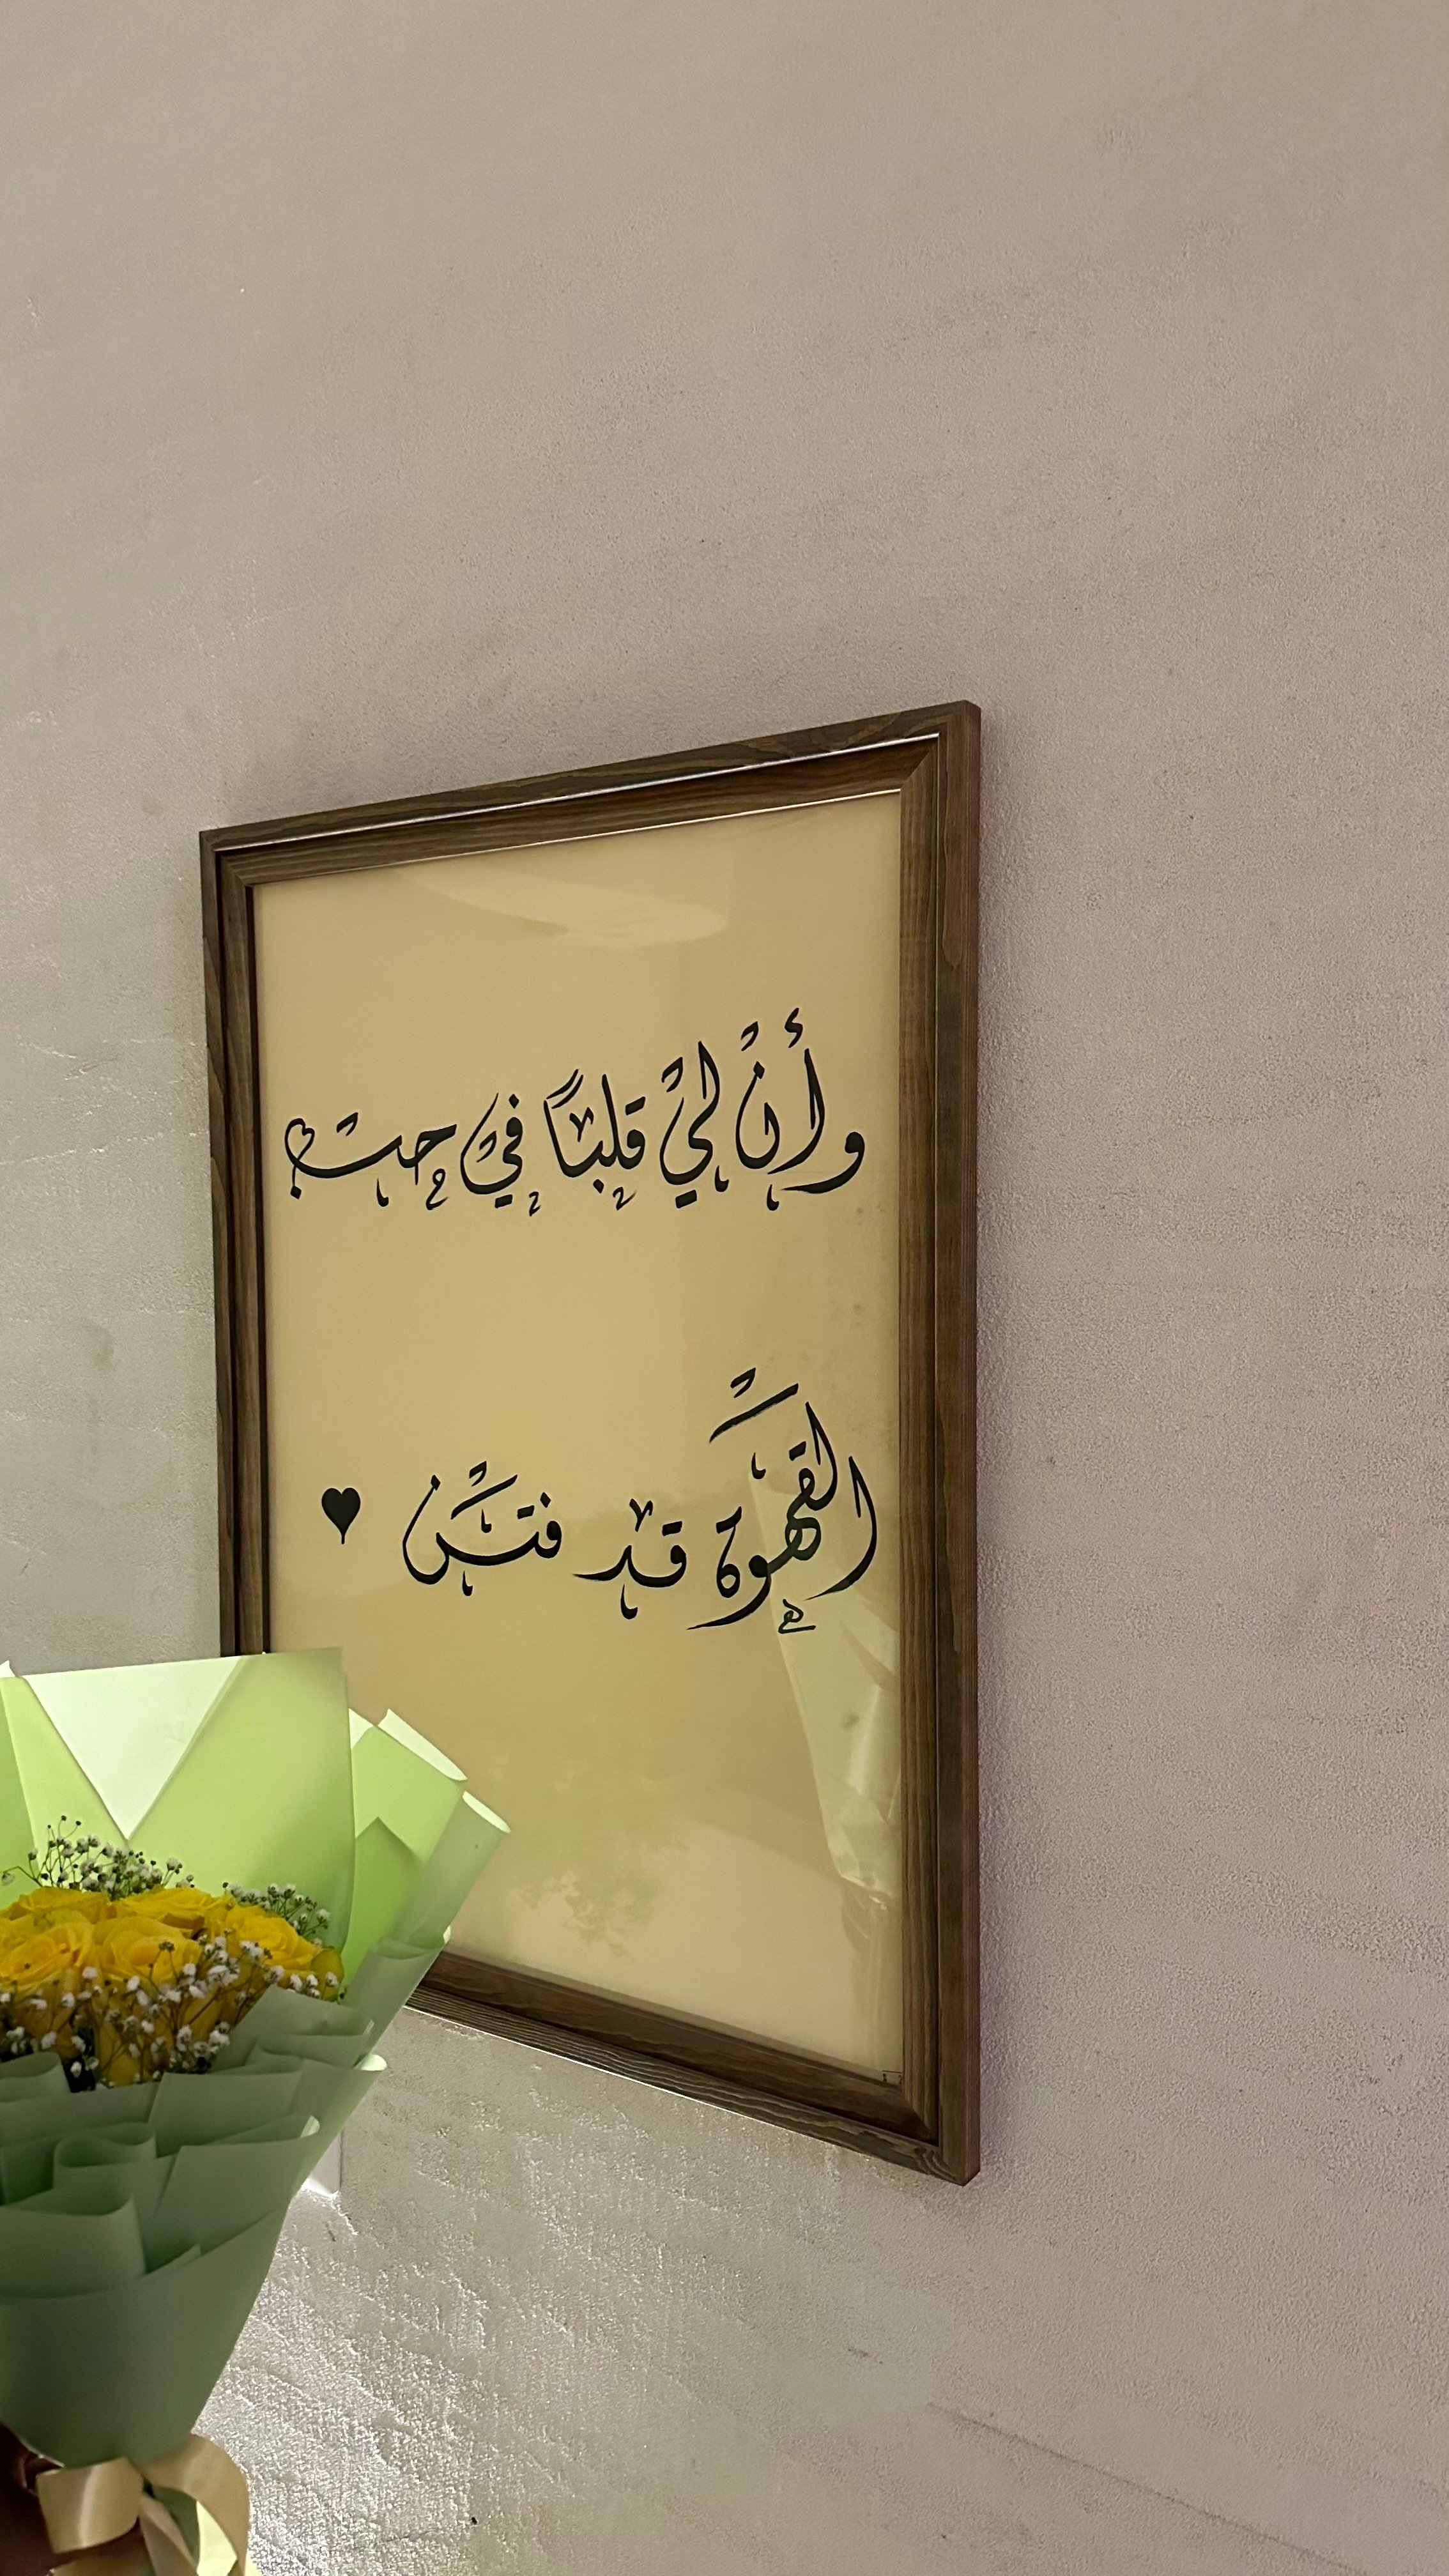 وأنْ ليْ قلبًا فيْ حب
القهوَة قد فتَن ♥